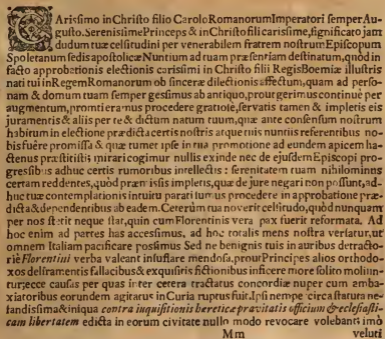 CArissimo in Christo filio Carolo Romanorum Imperatori semper Au-
gusto. Serenissime Princeps & in Christo fili carissime, significato jam
dudum tuæ celsitudini per venerabilem fratrem nostrum Episcopum
Spoletanum sedis apostolicæ Nuntium ad tuam præsentiam destinatum, quòd in
facto approbationis electionis carissimi in Christo filii Regis Boemiæ illustris
nati tui in Regem Romanorum ob sinceræ dilectionis affectum, quam ad perso-
nam & domum tuam semper gessimus ab antiquo, prout gerimus continuè per
augmentum, prompti eramus procedere gratiosè, servatis tamen & impletis eis
juramentis & aliis per te & dictum natum tuum, quæ ante consensum nostrum
habitum in electione prædicta certis nostris atque tuis nuntiis referentibus no-
bis fuêre promissa & quæ tumet ipse in tua promotione ad eundem apicem ha-
ctenus præstitisti; mirari cogimur nullis exinde nec de ejusdem Episcopi pro-
gressibus adhuc certis rumoribus intellectis: serenitatem tuam nihilominus
certam reddentes, quòd præmissis impletis, quæ de jure negari non possunt, ad-
huc tuæ contemplationis intuitu parati sumus procedere in approbatione præ-
dicta & dependentibus ab eadem. Ceterùm tua noverit celsitudo, quòd nunquam
per nos stetit neque stat, quin cum Florentinis vera pax fuerit reformata. Ad
hoc enim ad partes has accessimus, ad hoc totalis mens nostra vertatur, ut
omnem Italiam pacificare possimus Sed ne benignis tuis in auribus detracto-
riè Florentini verba valeant insufflare mendosa, prout Principes alios orthodo-
xos deliramentis fallacibus & exquisitis fictionibus inficere more solito moliun-
tur; ecce causis per quas inter cetera tractatus concordiæ nuper cum amba-
xiatoribus eorundem agitatus in Curia ruptus fuit. Ipsi nempe circa statura ne-
fandissima & iniqua contra inquisitionis hereticæ pravitatis officium & ecclesiasti-
cam libertatem edicta in eorum civitate nullo modo revocare volebant: imò
Mm veluti